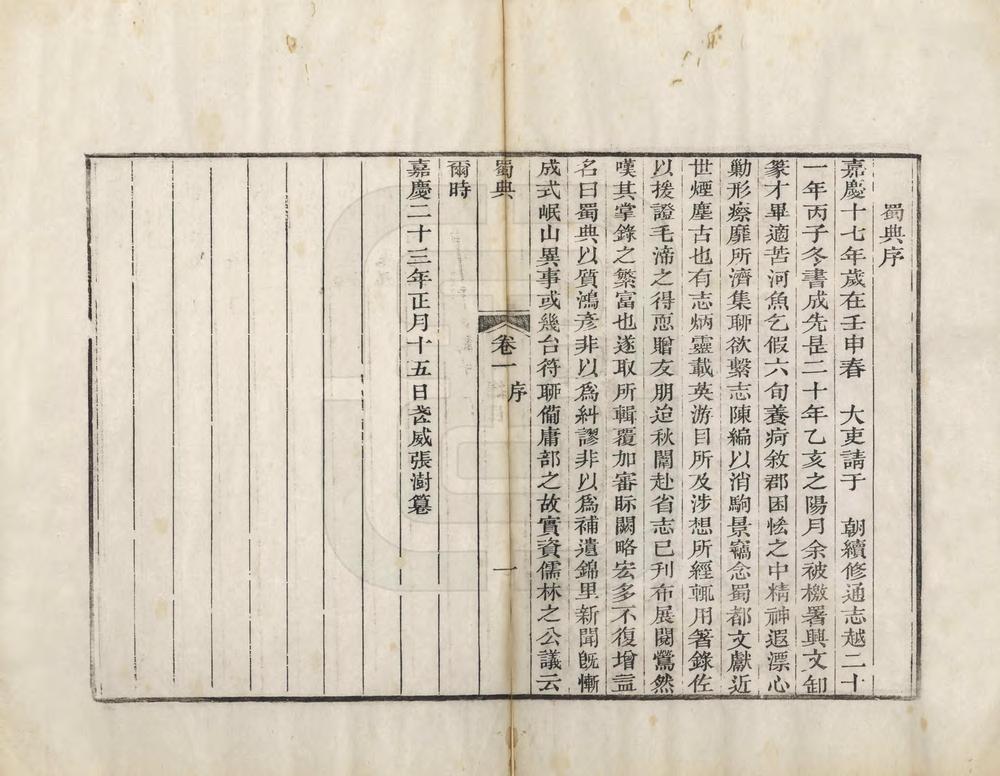 蜀典序
嘉慶十七年歲在壬申春　大吏請于　朝續修通志越二十
一年丙子冬書成先是二十年乙亥之陽月余被檄署興文卸
篆才畢適苦河魚乞假六旬養疴敘郡困悐之中精神遐漂心
勦形瘵靡所濟集聊欲繫志陳編以消駒景竊念蜀都文獻近
世煙塵古也有志炳靈載英游目所及涉想所經輒用箸錄佐
以援證毛渧之得悉贈友朋迨秋闈赴省志已刊布展閱驚然
嘆其掌錄之繁富也遂取所輯覆加審眎闕略宏多不復增益
名曰蜀典以質鴻彥非以爲糾謬非以爲補遺錦里新聞旣慚
成式岷山異事或幾台符聊備庸部之故實資儒林之公議云
蜀典
卷一
序
一
爾時
嘉慶二十三年正月十五日武威張澍簒